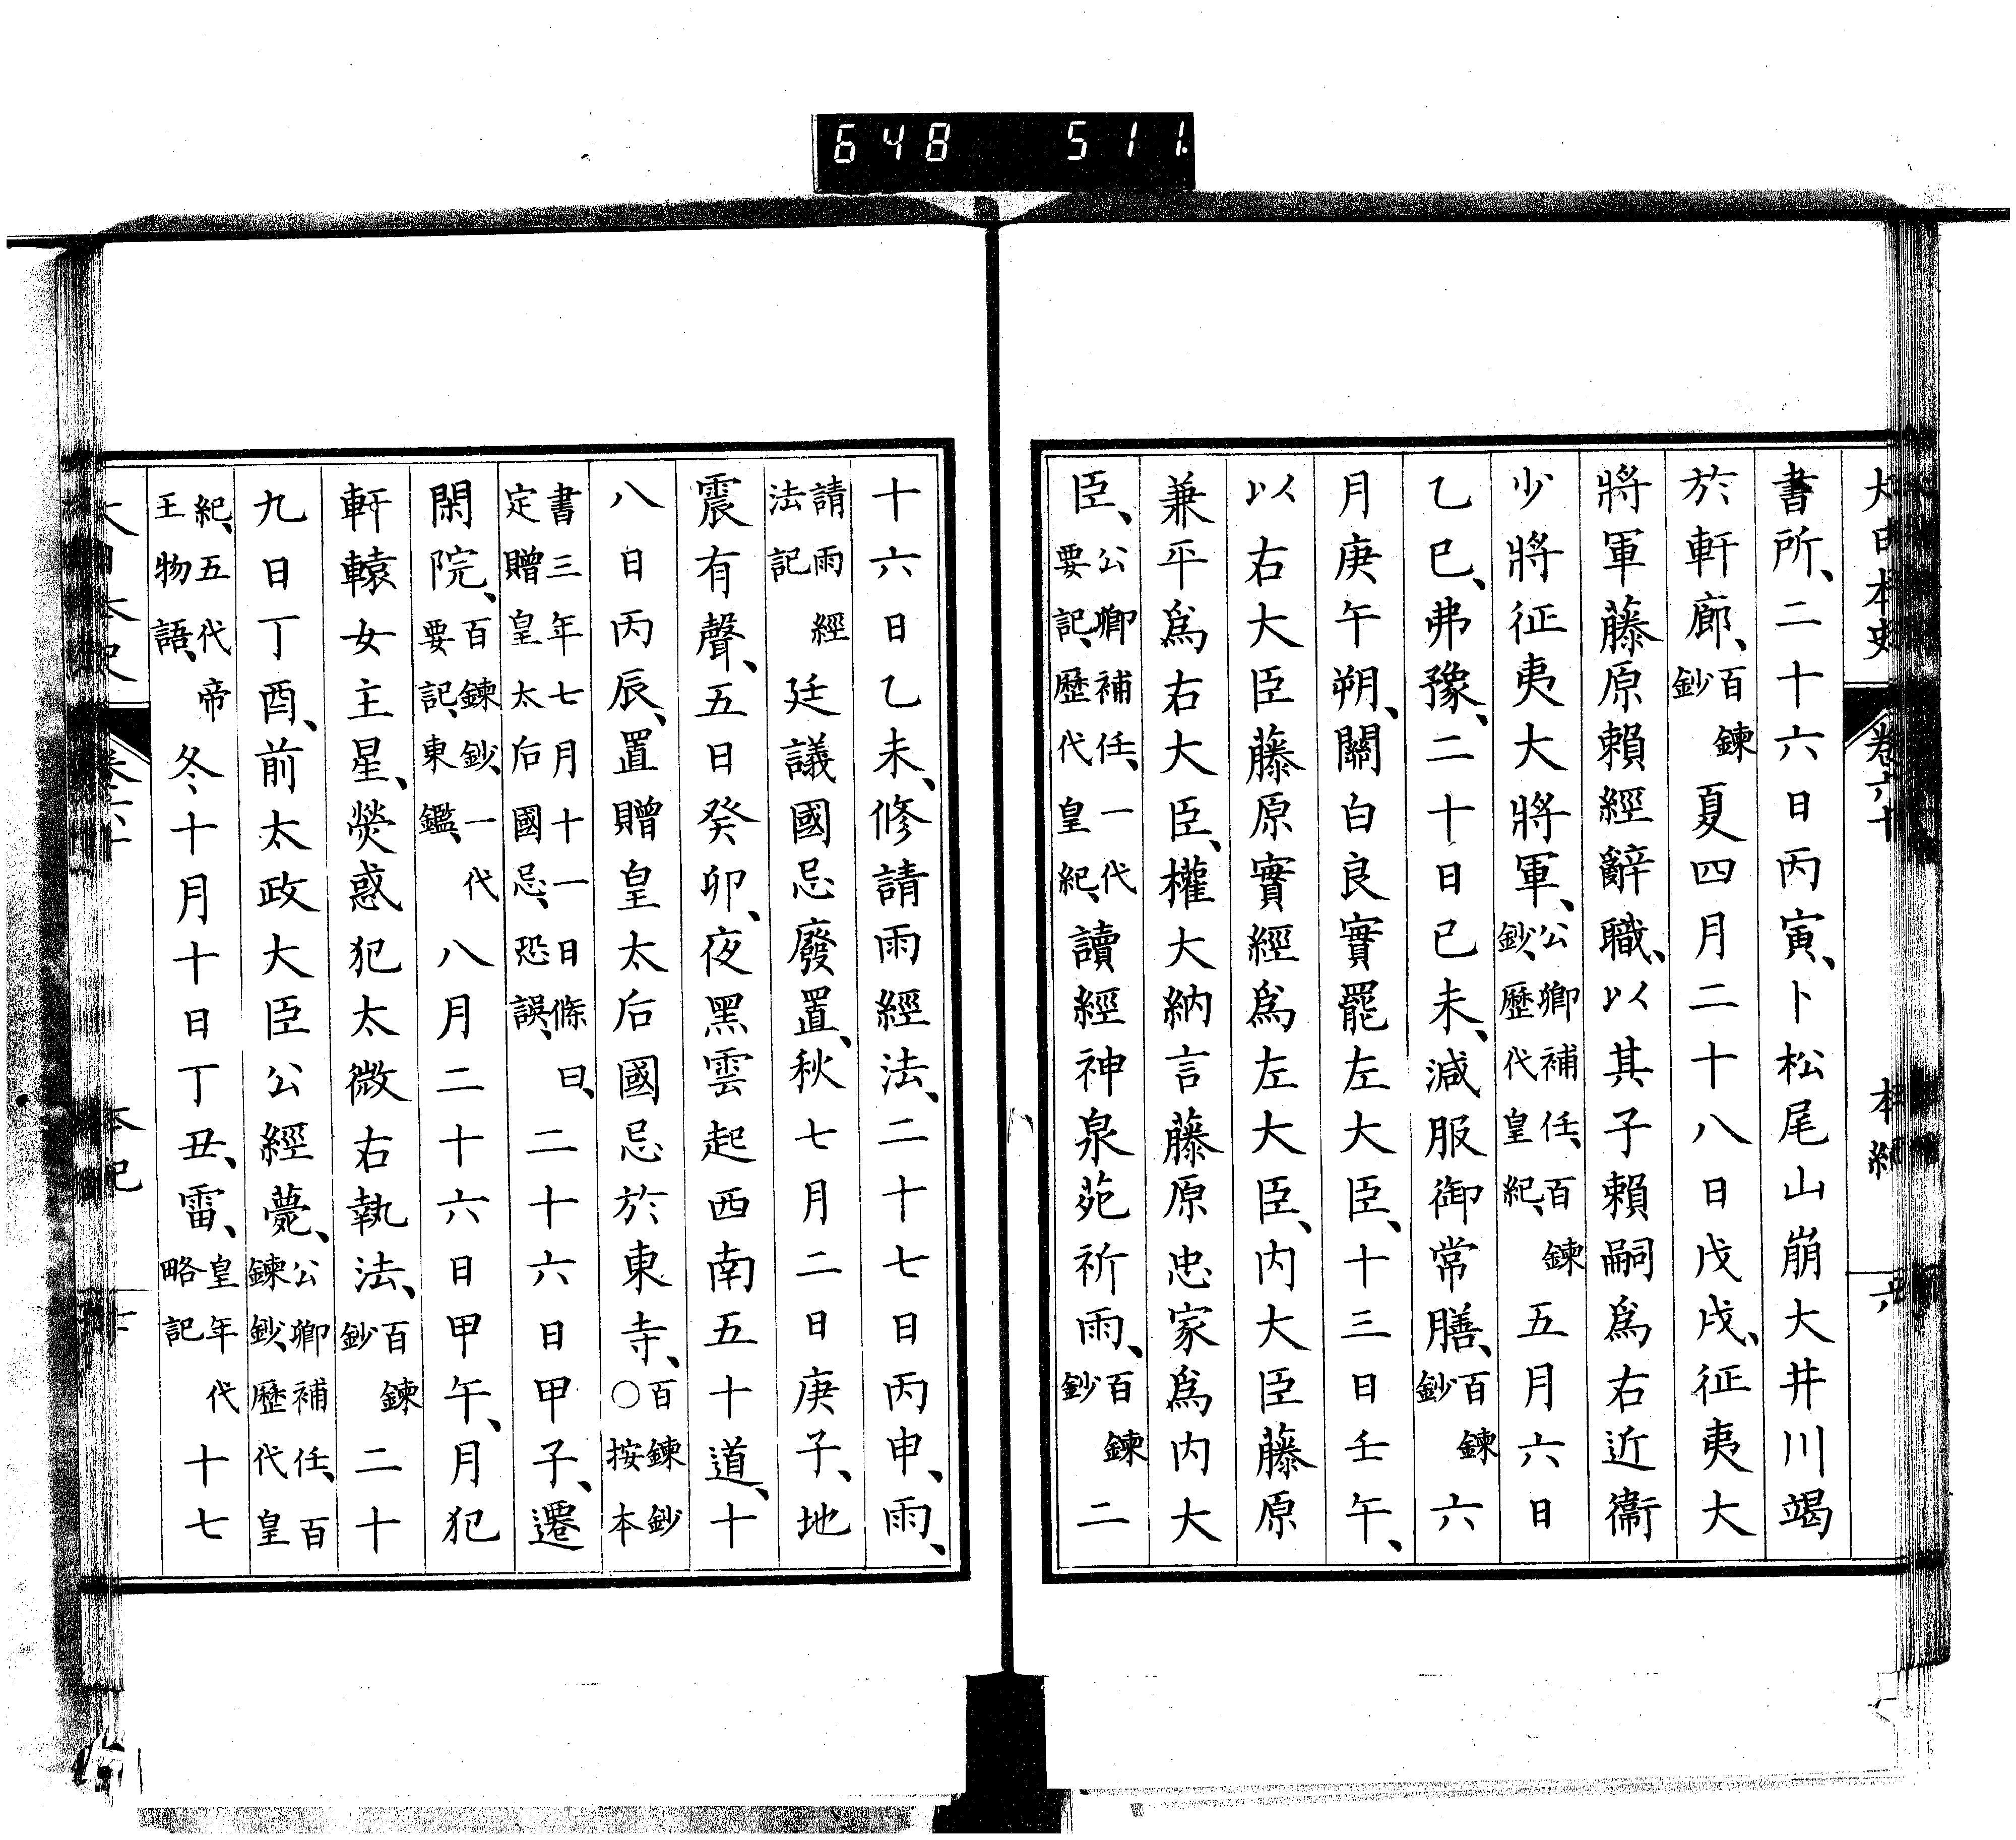 648 511.
大日本史 卷六十 本紀 六
書所、二十六日丙寅、卜松尾山崩大井川竭
於軒廊、百鍊鈔夏四月二十八日戊戌、征夷大
將軍藤原賴經辭職、以其子賴嗣爲右近衞
少將征夷大將軍、公卿補任、百鍊鈔、歷代皇紀、五月六日
乙巳、弗豫、二十日己未、減服御常膳、百鍊鈔六
月庚午朔、關白良實罷左大臣、十三日壬午、
以右大臣藤原實經爲左大臣、内大臣藤原
兼平爲右大臣、權大納言藤原忠家爲内大
臣、公卿補任、一代要記、歷代皇紀、讀經神泉苑祈雨、百鍊鈔二
十六日乙未、修請雨經法、二十七日丙申、雨、
請雨經法記廷議國忌廢置、秋七月二日庚子、地
震有聲、五日癸卯、夜黑雲起西南五十道、十
八日丙辰、置贈皇太后國忌於東寺、百鍊鈔○按本
書三年七月十一日條曰、定贈皇太后國忌、恐誤、二十六日甲子、遷
閑院、百鍊鈔、一代要記、東鑑、八月二十六日甲午、月犯
軒轅女主星、熒惑犯太微右執法、百鍊鈔二十
九日丁酉、前太政大臣公經薨、公卿補任、百鍊鈔、歷代皇
紀、五代帝王物語、冬十月十日丁丑、雷、皇年代略記十七